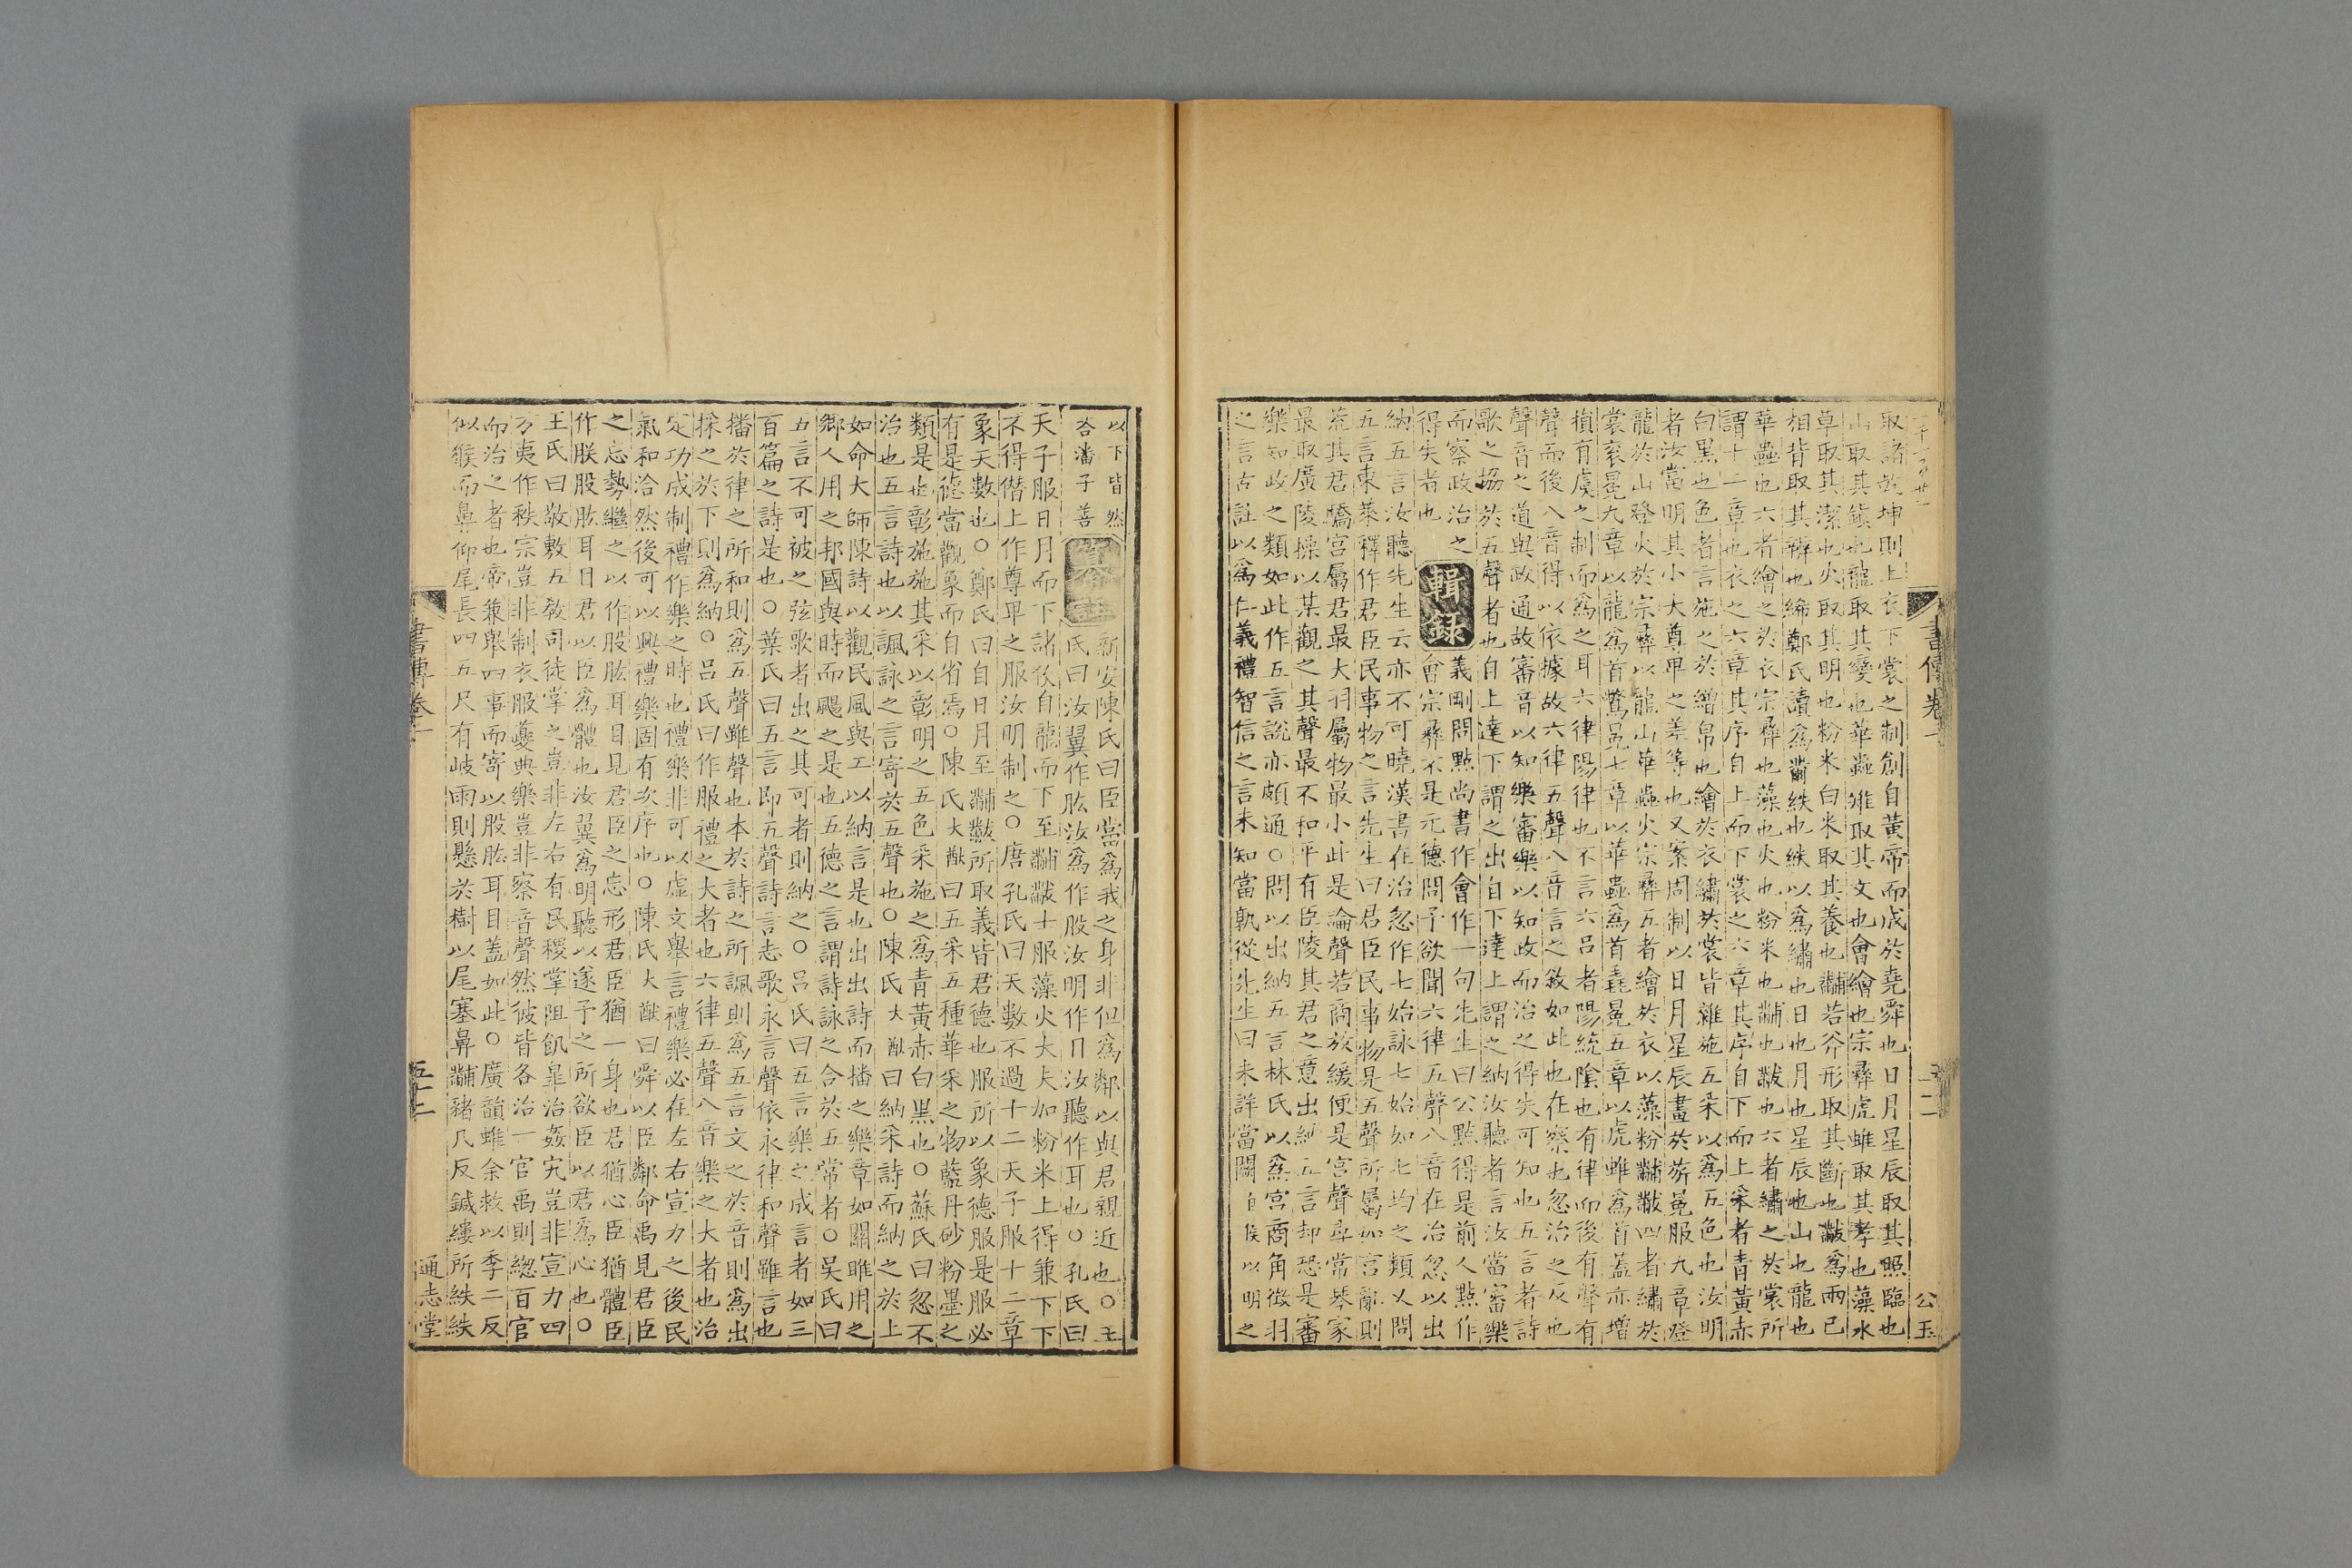 書傳卷一
公玉
取諸故坤則上衣下裳之制創自黃帝而成於堯舜也日月星辰取其照臨也
山取其鎮也龍取其變也華蟲雉取其文也會繪也宗彝虎蜼取其孝也藻水
草取其潔也火取其明也粉米白米取其養也黼若斧形取其斷也黻爲兩己
相背取其辨也絺鄭氏讀爲黹紩也紩以爲繡也日也月也星辰也山也龍也
華蟲也六者繪之於衣宗彝也藻也火也粉米也黼也黻也六者繡之於裳所
謂十二章也衣之六章其序自上而下裳之六章其序自下而上采者青黃赤
白黑也色者言施之於繒帛也繪於衣繡於裳皆雜施五采以爲五色也汝明
者汝當明其小大尊卑之差等也又案周制以日月星辰畫於旂冕服九章登
龍於山登火於宗彝以龍山華蟲火宗彝五者繪於衣以藻粉黼黻四者繡於
裳衮冕九章以龍爲首鷩冕七章以華蟲爲首毳冕五章以虎蜼爲首蓋亦增
損有虞之制而爲之耳六律陽律也不言六呂者陽統陰也有律而後有聲有
聲而後八音得以依據故六律五聲八音言之敘如此也在察也忽治之反也
聲音之道與政通故審音以知樂審樂以知政而治之得失可知也五言者詩
歌之協於五聲者也自上達下謂之出自下達上謂之納汝聽者言汝當審樂
而察政治之得失者也
輯錄
義剛問點尚書作會作一句先生曰公點得是前人點作
會宗彝不是元德問予欲聞六律五聲八音在治忽以出
納五言汝聽先生云亦不可曉漢書在治忽作七始詠七始如七均之類又問
五言東萊釋作君臣民事物之言先生曰君臣民事物是五聲所屬如言亂則
荒其君驕宮屬君最大羽屬物最小此是論聲若商放緩便是宮聲尋常琴家
最取廣陵操以某觀之其聲最不和平有臣陵其君之意出納五言却恐是審
樂知政之類如此作五言說亦頗通○問以出納五言林氏以爲宮商角徵羽
之言古註以爲仁義禮智信之言未知當孰從先生曰未詳當闕自侯以明之
以下皆然
答潘子善
新安陳氏曰臣當爲我之身非但爲鄰以與君親近也○王
氏曰汝翼作肱汝爲作股汝明作目汝聽作耳也○孔氏曰
天子服日月而下諸侯自龍而下至黼黻士服藻火大夫加粉米上得兼下下
不得僭上作尊卑之服汝明制之○唐孔氏曰天數不過十二天子服十二章
象天數也○鄭氏曰自日月至黼黻所取義皆君德也服所以象德服是服必
有是德當觀象而自省焉○陳氏大猷曰五采五種華采之物藍丹砂粉墨之
類是也彰施施其采以彰明之五色采施之爲青黃赤白黑也○蘇氏曰忽不
治也五言詩也以諷詠之言寄於五聲也○陳氏大猷曰納采詩而納之於上
如命大師陳詩以觀民風與工以納言是也出出詩而播之樂章如關雎用之
鄉人用之邦國與時而颺之是也五德之言謂詩詠之合於五常者○吳氏曰
五言不可被之弦歌者出之其可者則納之○呂氏曰五言樂之成言者如三
百篇之詩是也○葉氏曰五言即五聲詩言志歌永言聲依永律和聲雖言也
播於律之所和則爲五聲雖聲也本於詩之所諷則爲五言文之於音則爲出
採之於下則爲納○呂氏曰作服禮之大者也六律五聲八音樂之大者也治
定功成制禮作樂之時也禮樂非可以虛文舉言禮樂必在左右宣力之後民
氣和洽然後可以興禮樂固有次序也○陳氏大猷曰舜以臣鄰命禹見君臣
之忘勢繼之以作股肱耳目見君臣之忘形君臣猶一身也君猶心臣猶體臣
作朕股肱耳目君以臣爲體也汝翼爲明聽以遂予之所欲臣以君爲心也○
王氏曰敬敷五敎司徒掌之豈非左右有民稷掌阻飢皐治姦宄豈非宣力四
方夷作秩宗豈非制衣服夔典樂豈非察音聲然彼皆各治一官禹則總百官
而治之者也帝兼舉四事而寄以股肱耳目蓋如此○廣韻蜼余救以季二反
似猴而鼻仰尾長四五尺有岐雨則懸於樹以尾塞鼻黼豬几反鍼縷所紩紩
書傳卷一
五十二
通志堂